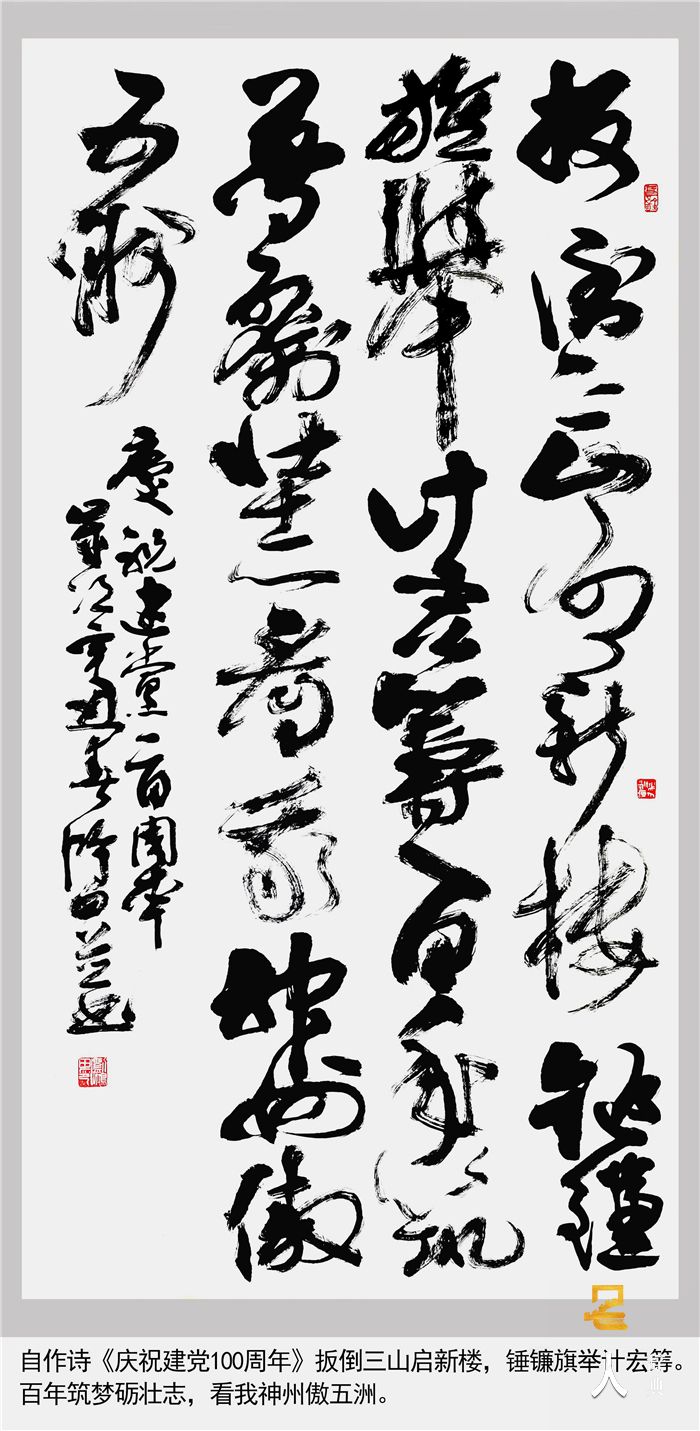 扳倒三山启新楼锤鐮
旗舉计宏籌百年筑
夢砺壮志看我神州傲
五洲
慶祝建黨一百周年
歲次辛丑春
自作诗《庆祝建党100周年》扳倒三山启新楼，锤镰旗举计宏筹。
百年筑梦砺壮志，看我神州傲五洲。